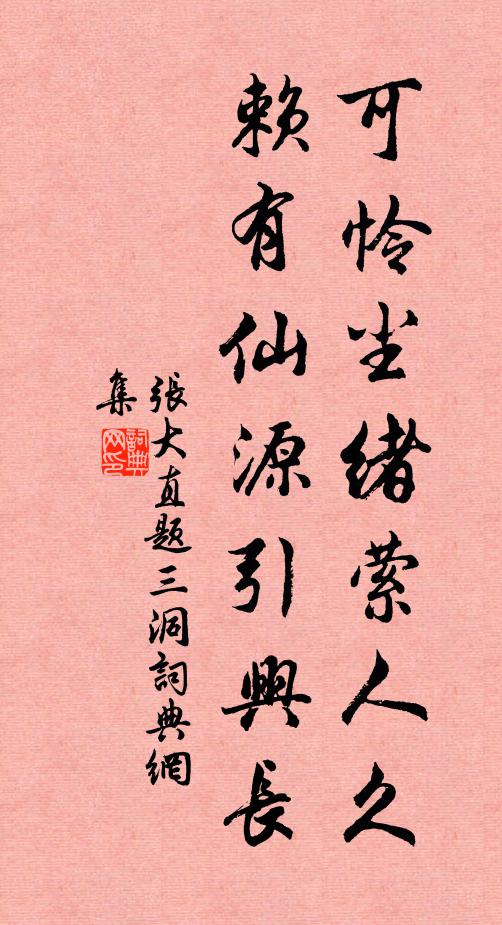 可怜尘绪萦人久
赖有仙源引興長
張大直题三洞詞典網
集
詞典网印